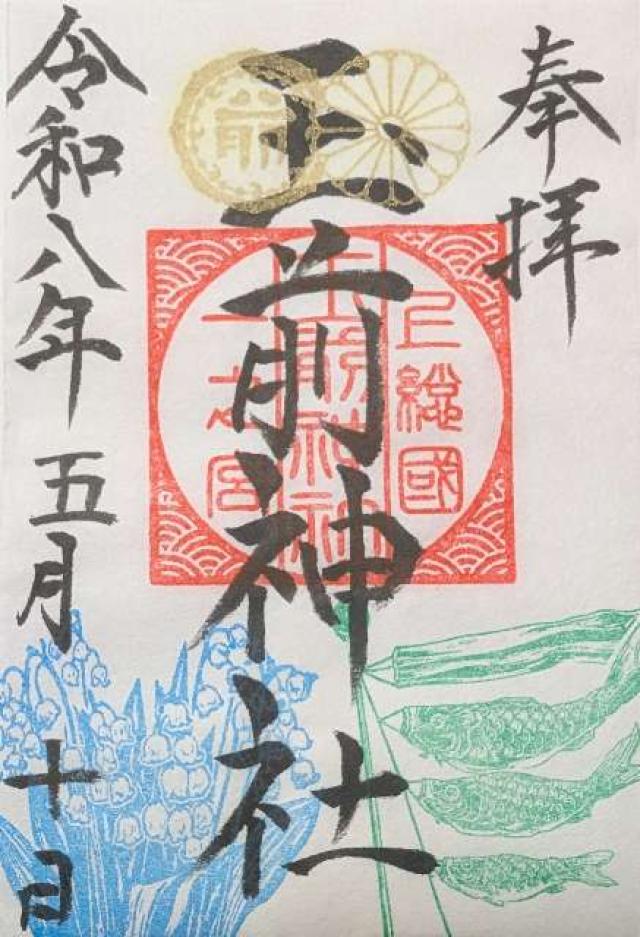 奉拝
玉前神社
令和八年五月十日
上総國
一之宮
前